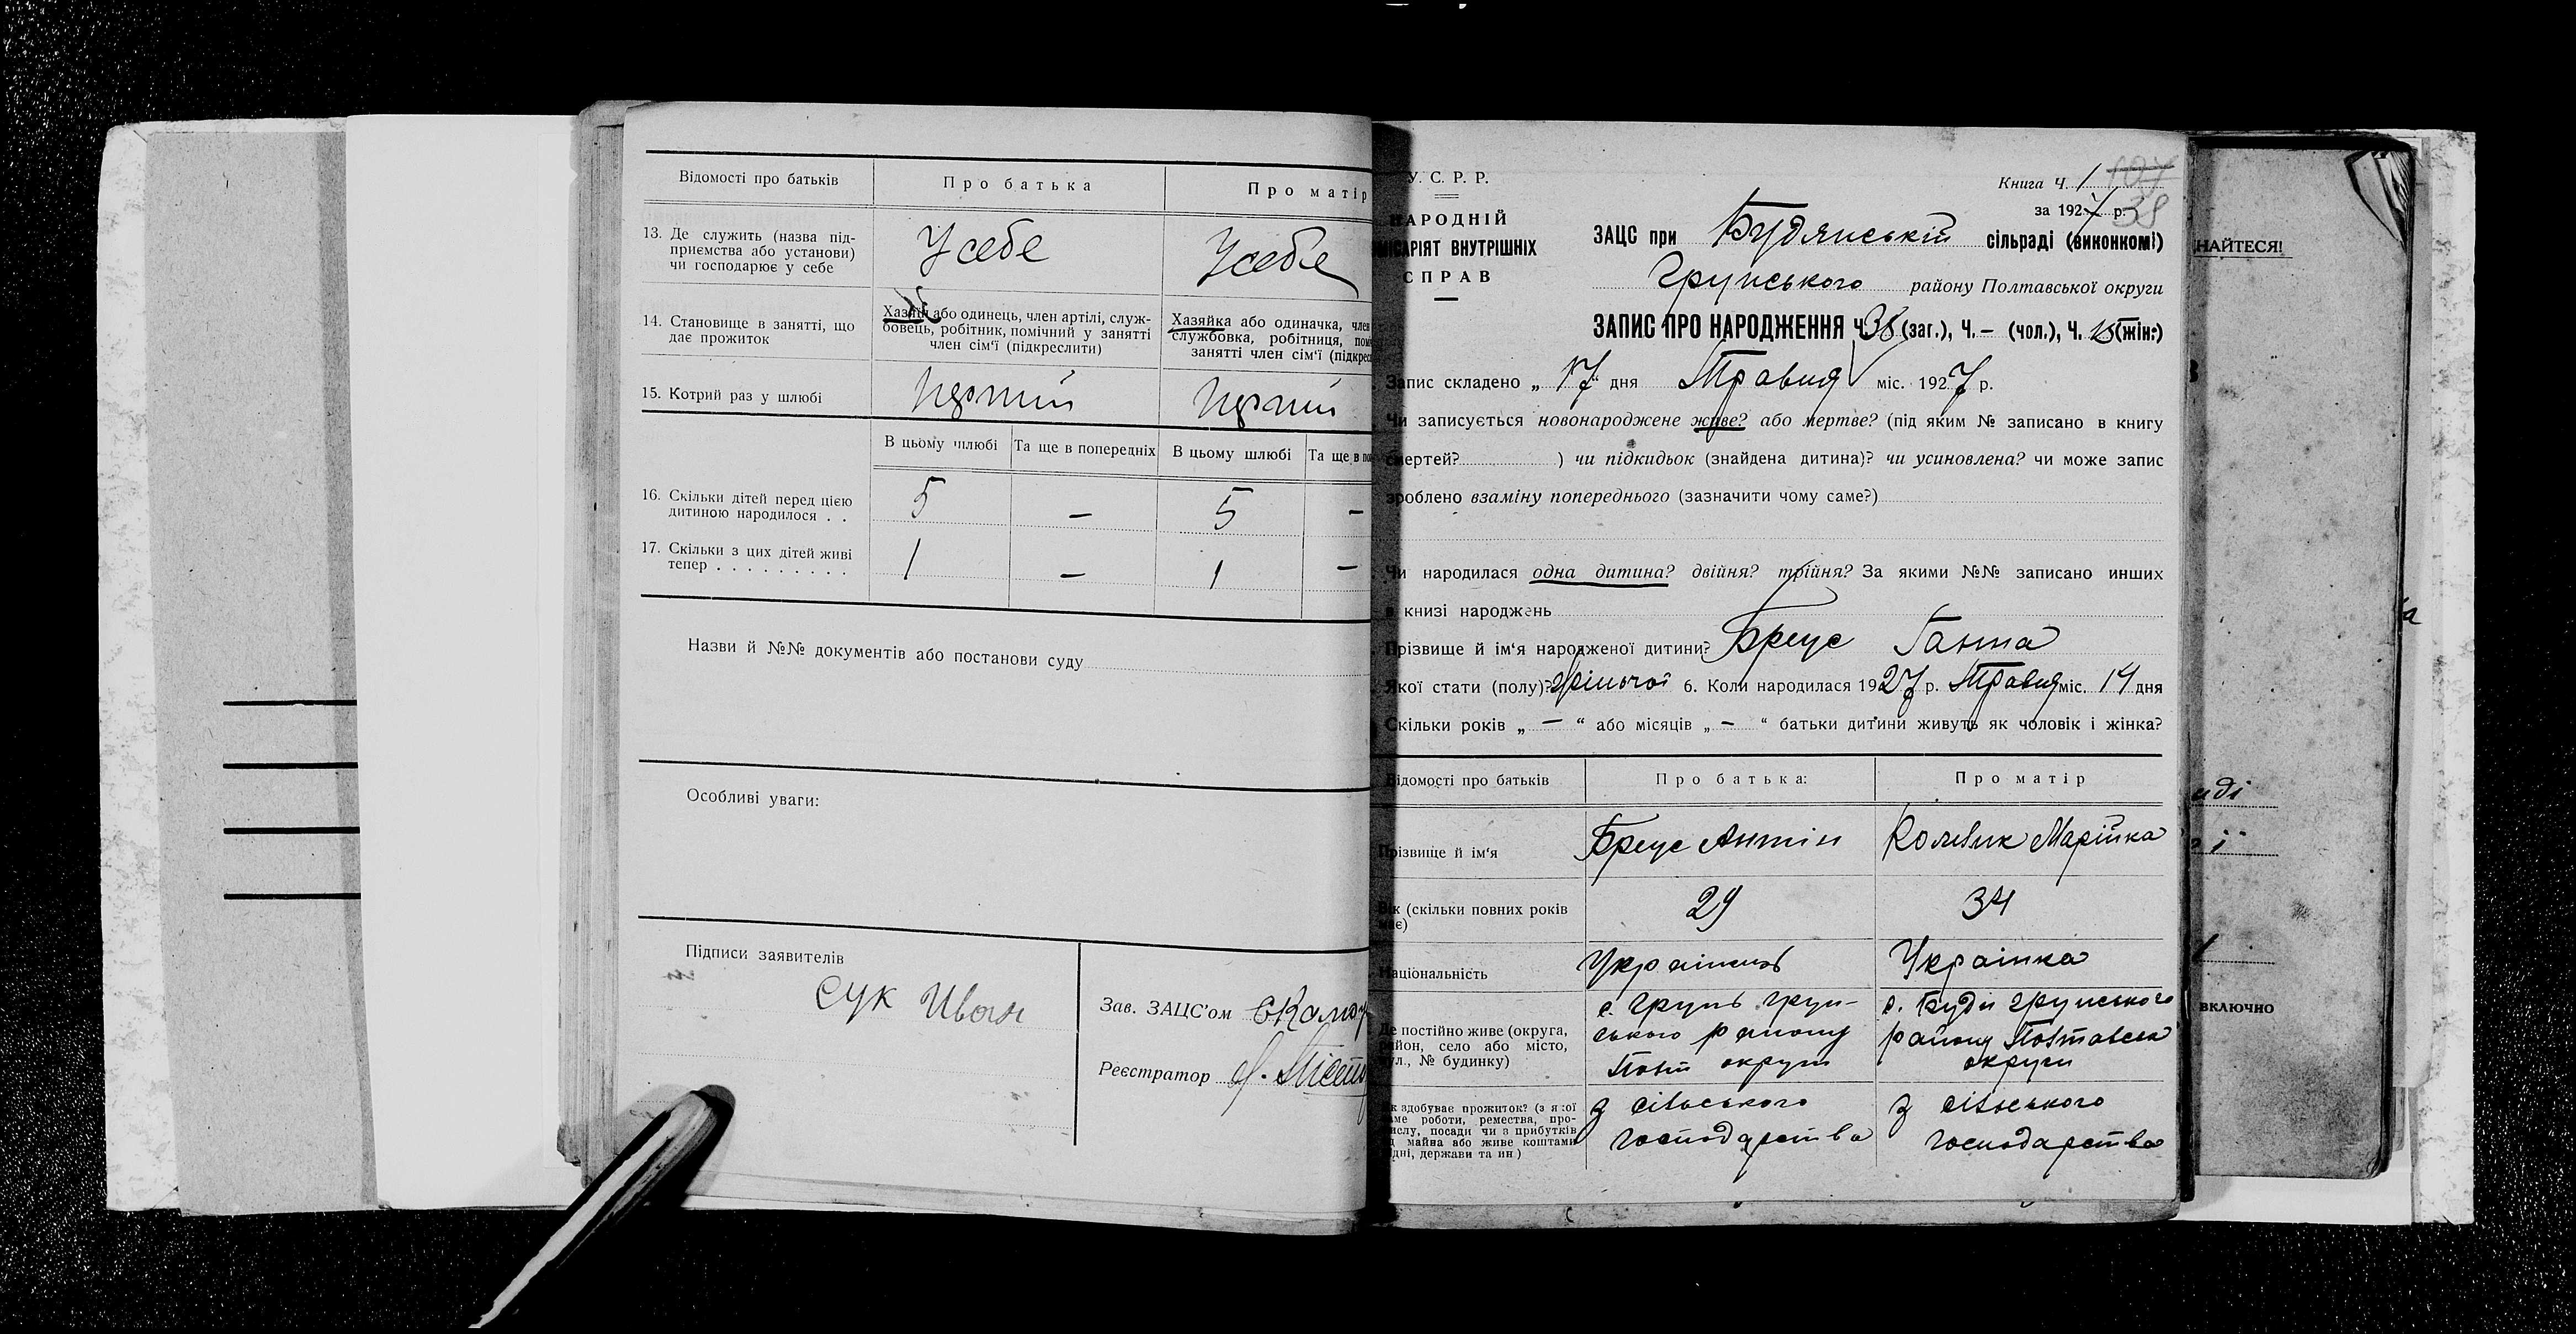 Відомості про батьків
Про батька
Про матір
13. Де служить (назва під-
приємства або установи)
чи господарює у себе
У себе
У себе
14. Становище в занятті, що
дає прожиток
Хазяїн або одинець, член артілі, служ-
бовець, робітник, помічний у занятті
член сім'ї (підкреслити)
Хазяйка або одиначка, член
службовка, робітниця,
занятті член сім'ї
15. Котрий раз у шлюбі
Перший
Перший
В цьому шлюбі
Та ще в попередніх
В цьому шлюбі
Та ще в
16. Скільки дітей перед цією
дитиною народилося . .
5 — 5 —
17. Скільки з цих дітей живі
тепер . . . . . . . . .
1 — 1 —
Назви й №№ документів або постанови суду
Особливі уваги:
Підписи заявителів
Сук Иван
Зав. ЗАЦС'ом
Реєстратор
У. С. Р. Р.
НАРОДНІЙ
ВНУТРІШНІХ
СПРАВ
Книга Ч. 1
за 1927 р.
38
ЗАЦС при Будянській сільраді (виконкомі)
Грунського району Полтавської округи
ЗАПИС ПРО НАРОДЖЕННЯ Ч. 38 (заг.), Ч. — (чол.), Ч. (жін.)
Запис складено „ 17 " дня Травня міс. 1927 р.
Чи записується новонароджене живе? або мертве? (під яким № записано в книгу
смертей? ) чи підкидьок (знайдена дитина)? чи усиновлена? чи може запис
зроблено взаміну попереднього (зазначити чому саме?)
Чи народилася одна дитина? двійня? трійня? За якими №№ записано инших
в книзі народжень
Прізвище й ім'я народженої дитини? Бреус Ганна
Якої стати (полу)? жіночої 6. Коли народилася 1927 р. Травня міс. 14 дня
Скільки років „ — " або місяців „ — " батьки дитини живуть як чоловік і жінка?
Відомості про батьків
Про батька:
Про матір
Прізвище й ім'я
Бреус Антін
Марійка
Вік (скільки повних років
має)
29
34
Національність
Українець
Українка
Де постійно живе (округа,
район, село або місто,
вул., № будинку)
с. Грунь Грун-
ського району
Полт округи
с. Буди Грунського
району Полтавськ
округи
Як здобуває прожиток? (з якої
саме роботи, ремества, про-
мислу, посади чи з прибутків
від майна або живе коштами
рідні, держави та ин)
з сільського
господарства
з сільського
господарства
НАЙТЕСЯ!
ВКЛЮЧНО